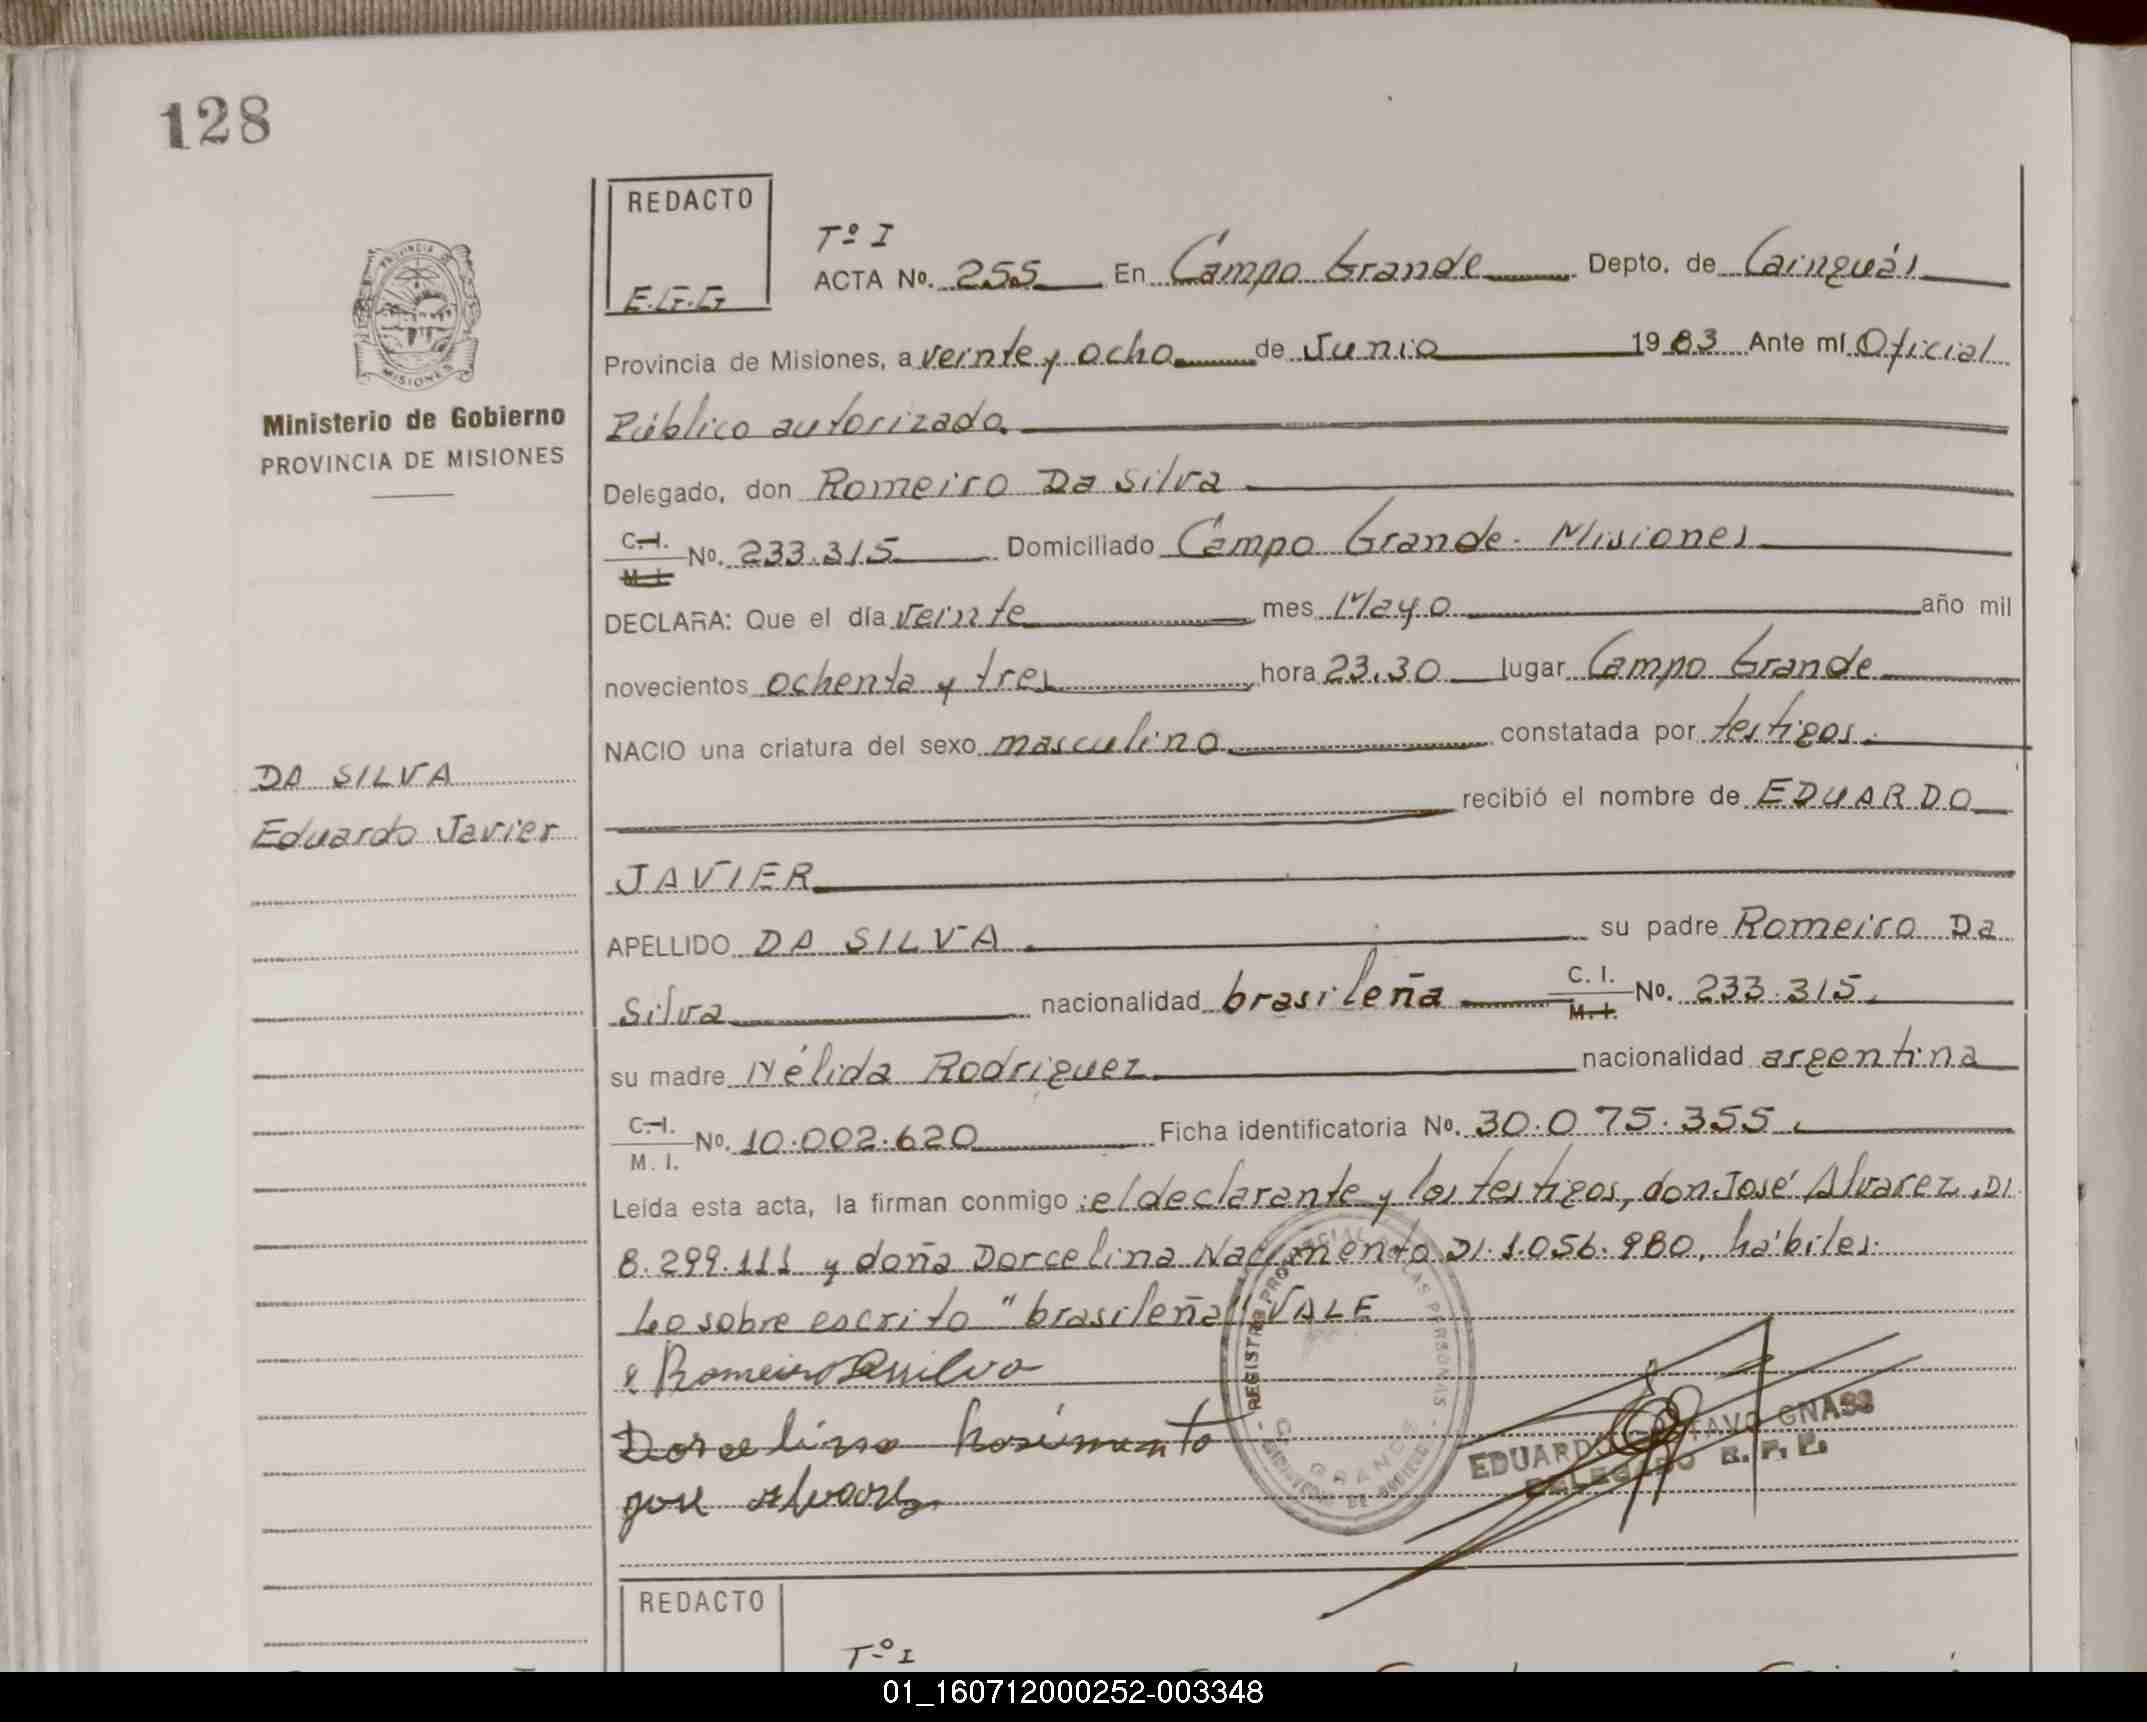 128
REDACTO
E.G.G
Tº I
ACTA No. 255 En Campo Grande Depto. de Cainguás
Provincia de Misiones, a veinte y ocho de Junio 1983 Ante mí Oficial
Público autorizado
Delegado, don Romeiro Da Silva
C.I. M.I. No. 233.315 Domiciliado Campo Grande - Misiones
DECLARA: Que el día veinte mes Mayo año mil
novecientos ochenta y tres hora 23.30 lugar Campo Grande
NACIO una criatura del sexo masculino constatada por testigos.
recibió el nombre de EDUARDO
JAVIER
APELLIDO DA SILVA su padre Romeiro Da
Silva nacionalidad brasileña C. I. M. I. No. 233.315.
su madre Nélida Rodriguez nacionalidad argentina
C.I. M. I. No. 10.002.620 Ficha identificatoria No. 30.075.355.
Leída esta acta, la firman conmigo: el declarante y los testigos, don José Alvarez, DI
8.299.111 y doña Dorcelina Nacimento DI. 1.056.980, hábiles.
Lo sobre escrito "brasileña" VALE
Romeiro Dasilva
Dorcelina Nasimento
jose alvarez
REGISTRO PROVINCIAL DE LAS PERSONAS
C. GRANDE
EDUARDO GUSTAVO GNASS
DELEGADO R. P. P.
PROVINCIA DE
MISIONES
Ministerio de Gobierno
PROVINCIA DE MISIONES
DA SILVA
Eduardo Javier
REDACTO
Tº I
01_160712000252-003348